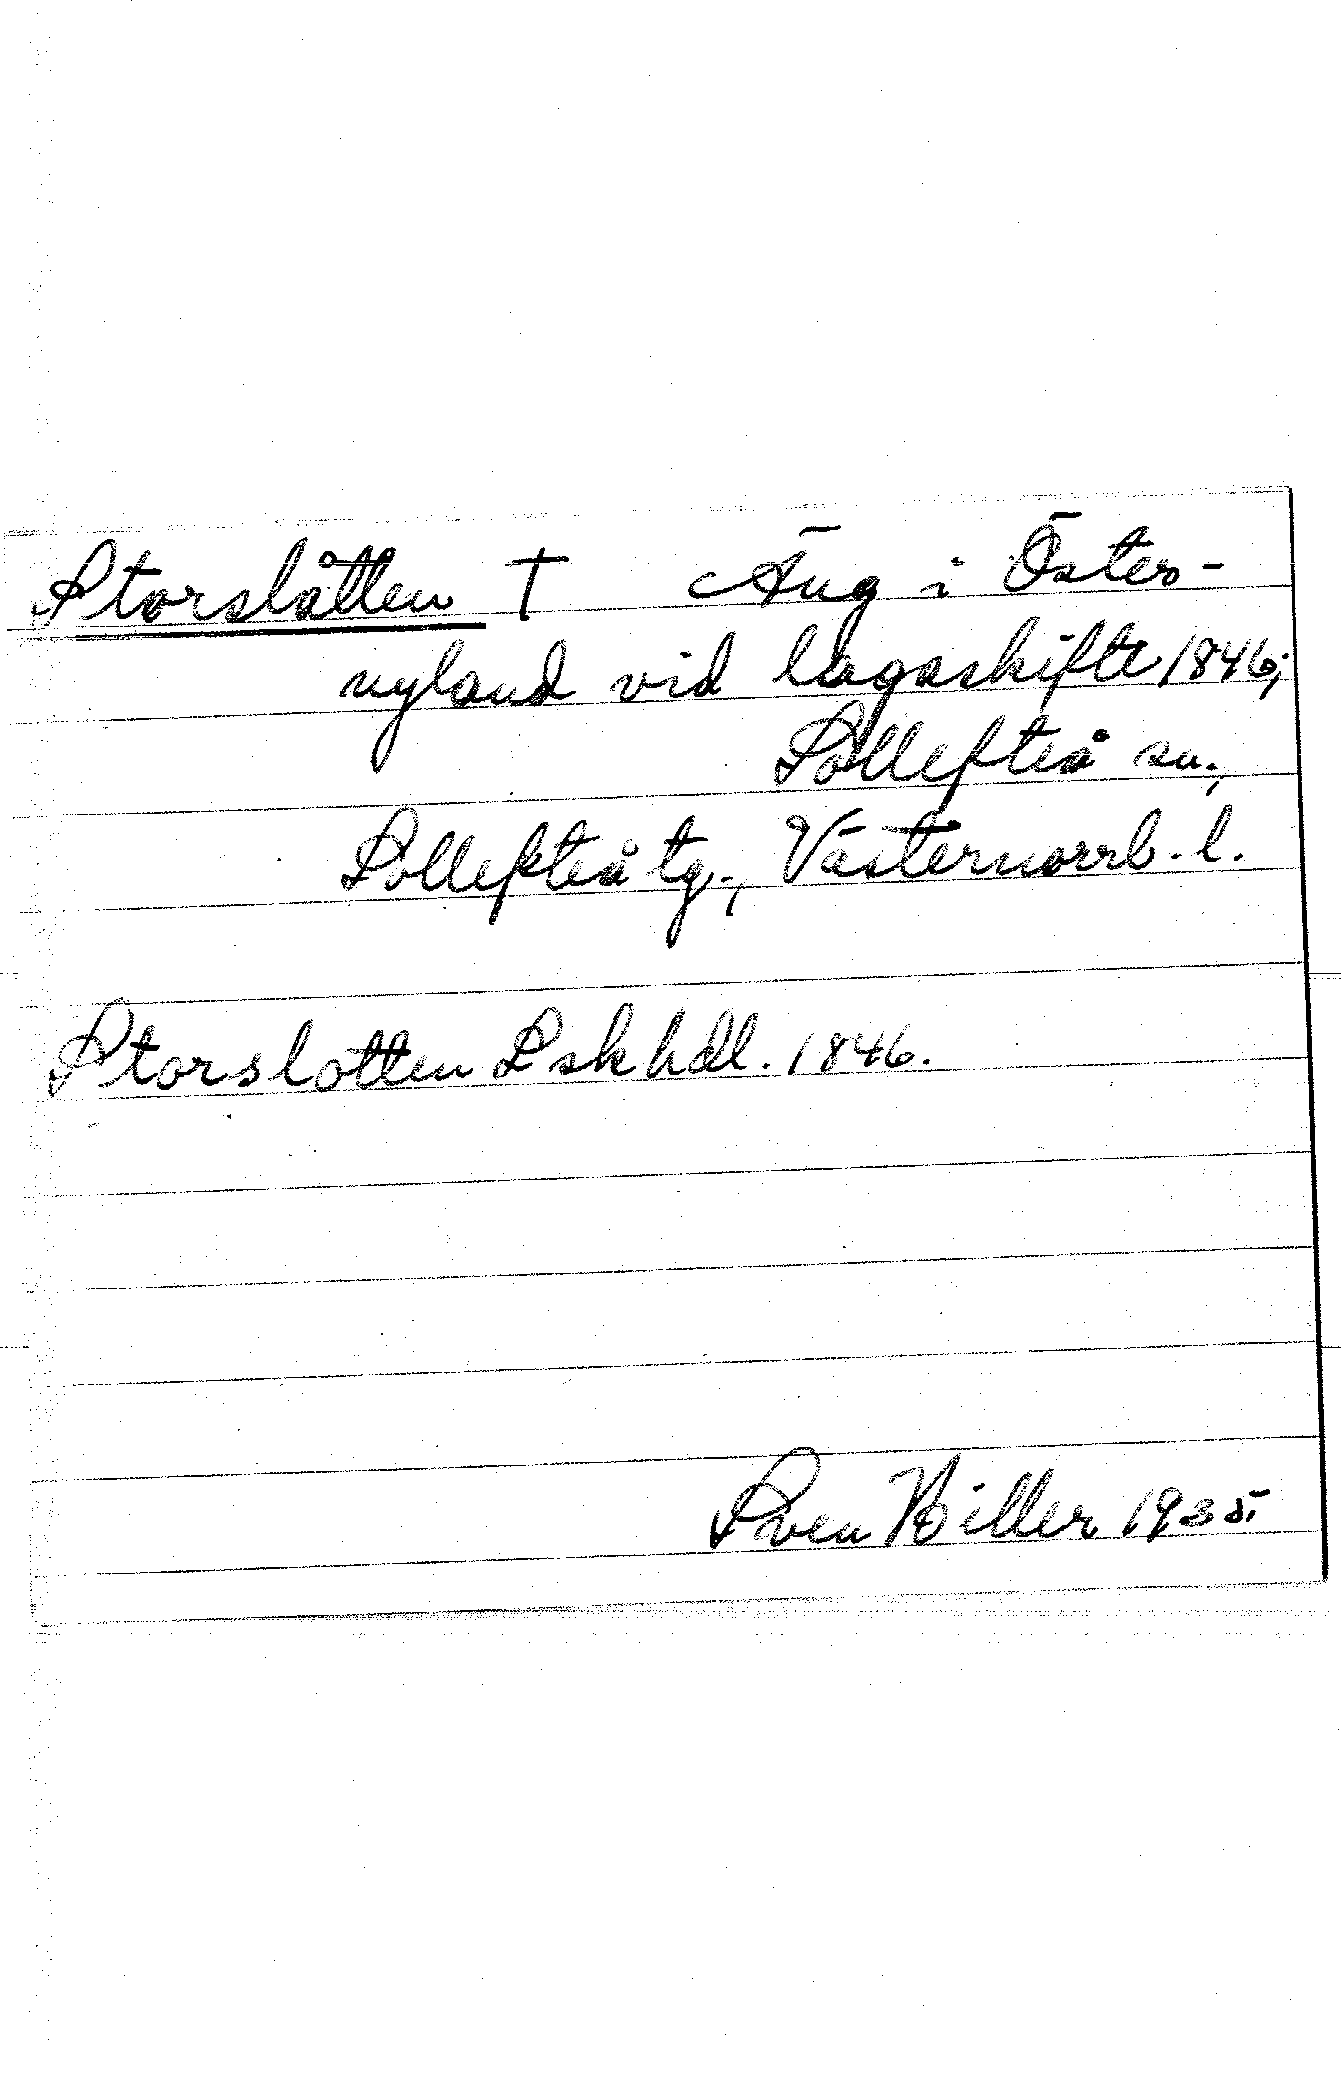 Storslåtten † Äng i Öster-
nyland vid lagaskifte 1846;
Sollefteå sn.,
Sollefteå tg., Västernorrl. l.
Storslotten Lskhdl. 1846.
Sven Biller 1935